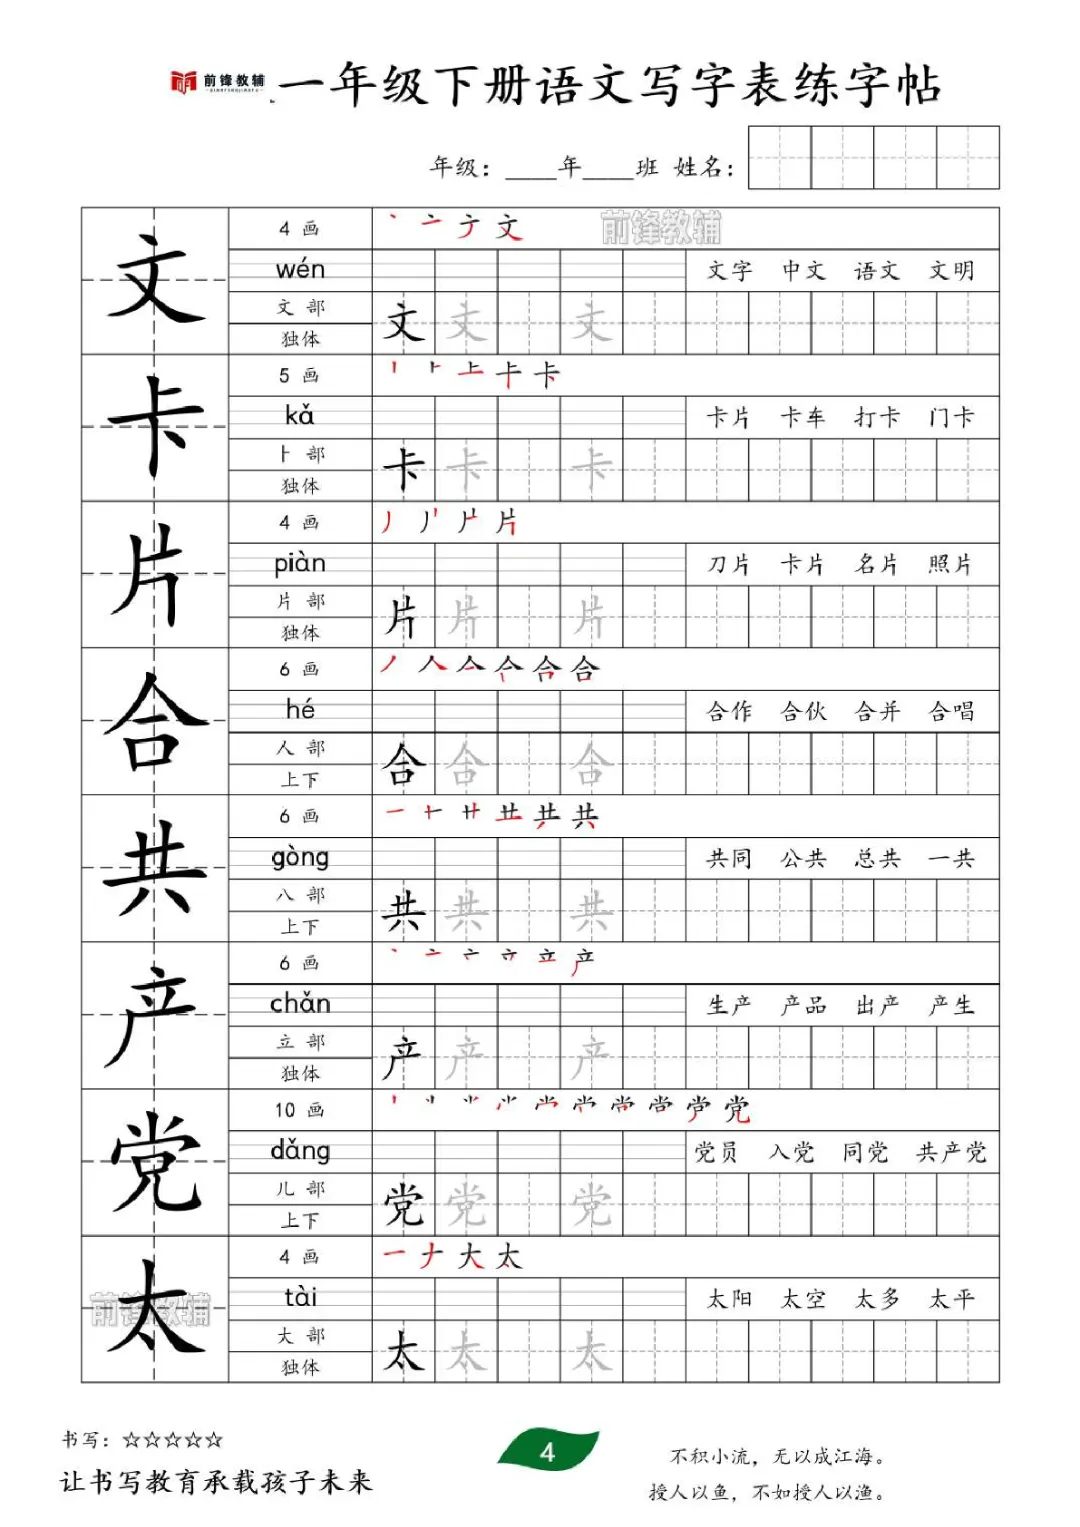 前锋教辅 一年级下册语文写字表练字帖
年级：____年____班 姓名：
4 画 前锋教辅
文 wén 文字 中文 语文 文明
文 部 文 文 文
独体
5 画
卡 kǎ 卡片 卡车 打卡 门卡
⺊ 部 卡 卡 卡
独体
4 画
片 piàn 刀片 卡片 名片 照片
片 部 片 片 片
独体
6 画
合 hé 合作 合伙 合并 合唱
人 部 合 合 合
上下
6 画
共 gòng 共同 公共 总共 一共
八 部 共 共 共
上下
6 画
产 chǎn 生产 产品 出产 产生
立 部 产 产 产
独体
10 画
党 dǎng 党员 入党 同党 共产党
儿 部 党 党 党
上下
4 画
太 tài 太阳 太空 太多 太平
前锋教辅
大 部 太 太 太
独体
书写：☆☆☆☆☆
让书写教育承载孩子未来
4
不积小流，无以成江海。
授人以鱼，不如授人以渔。